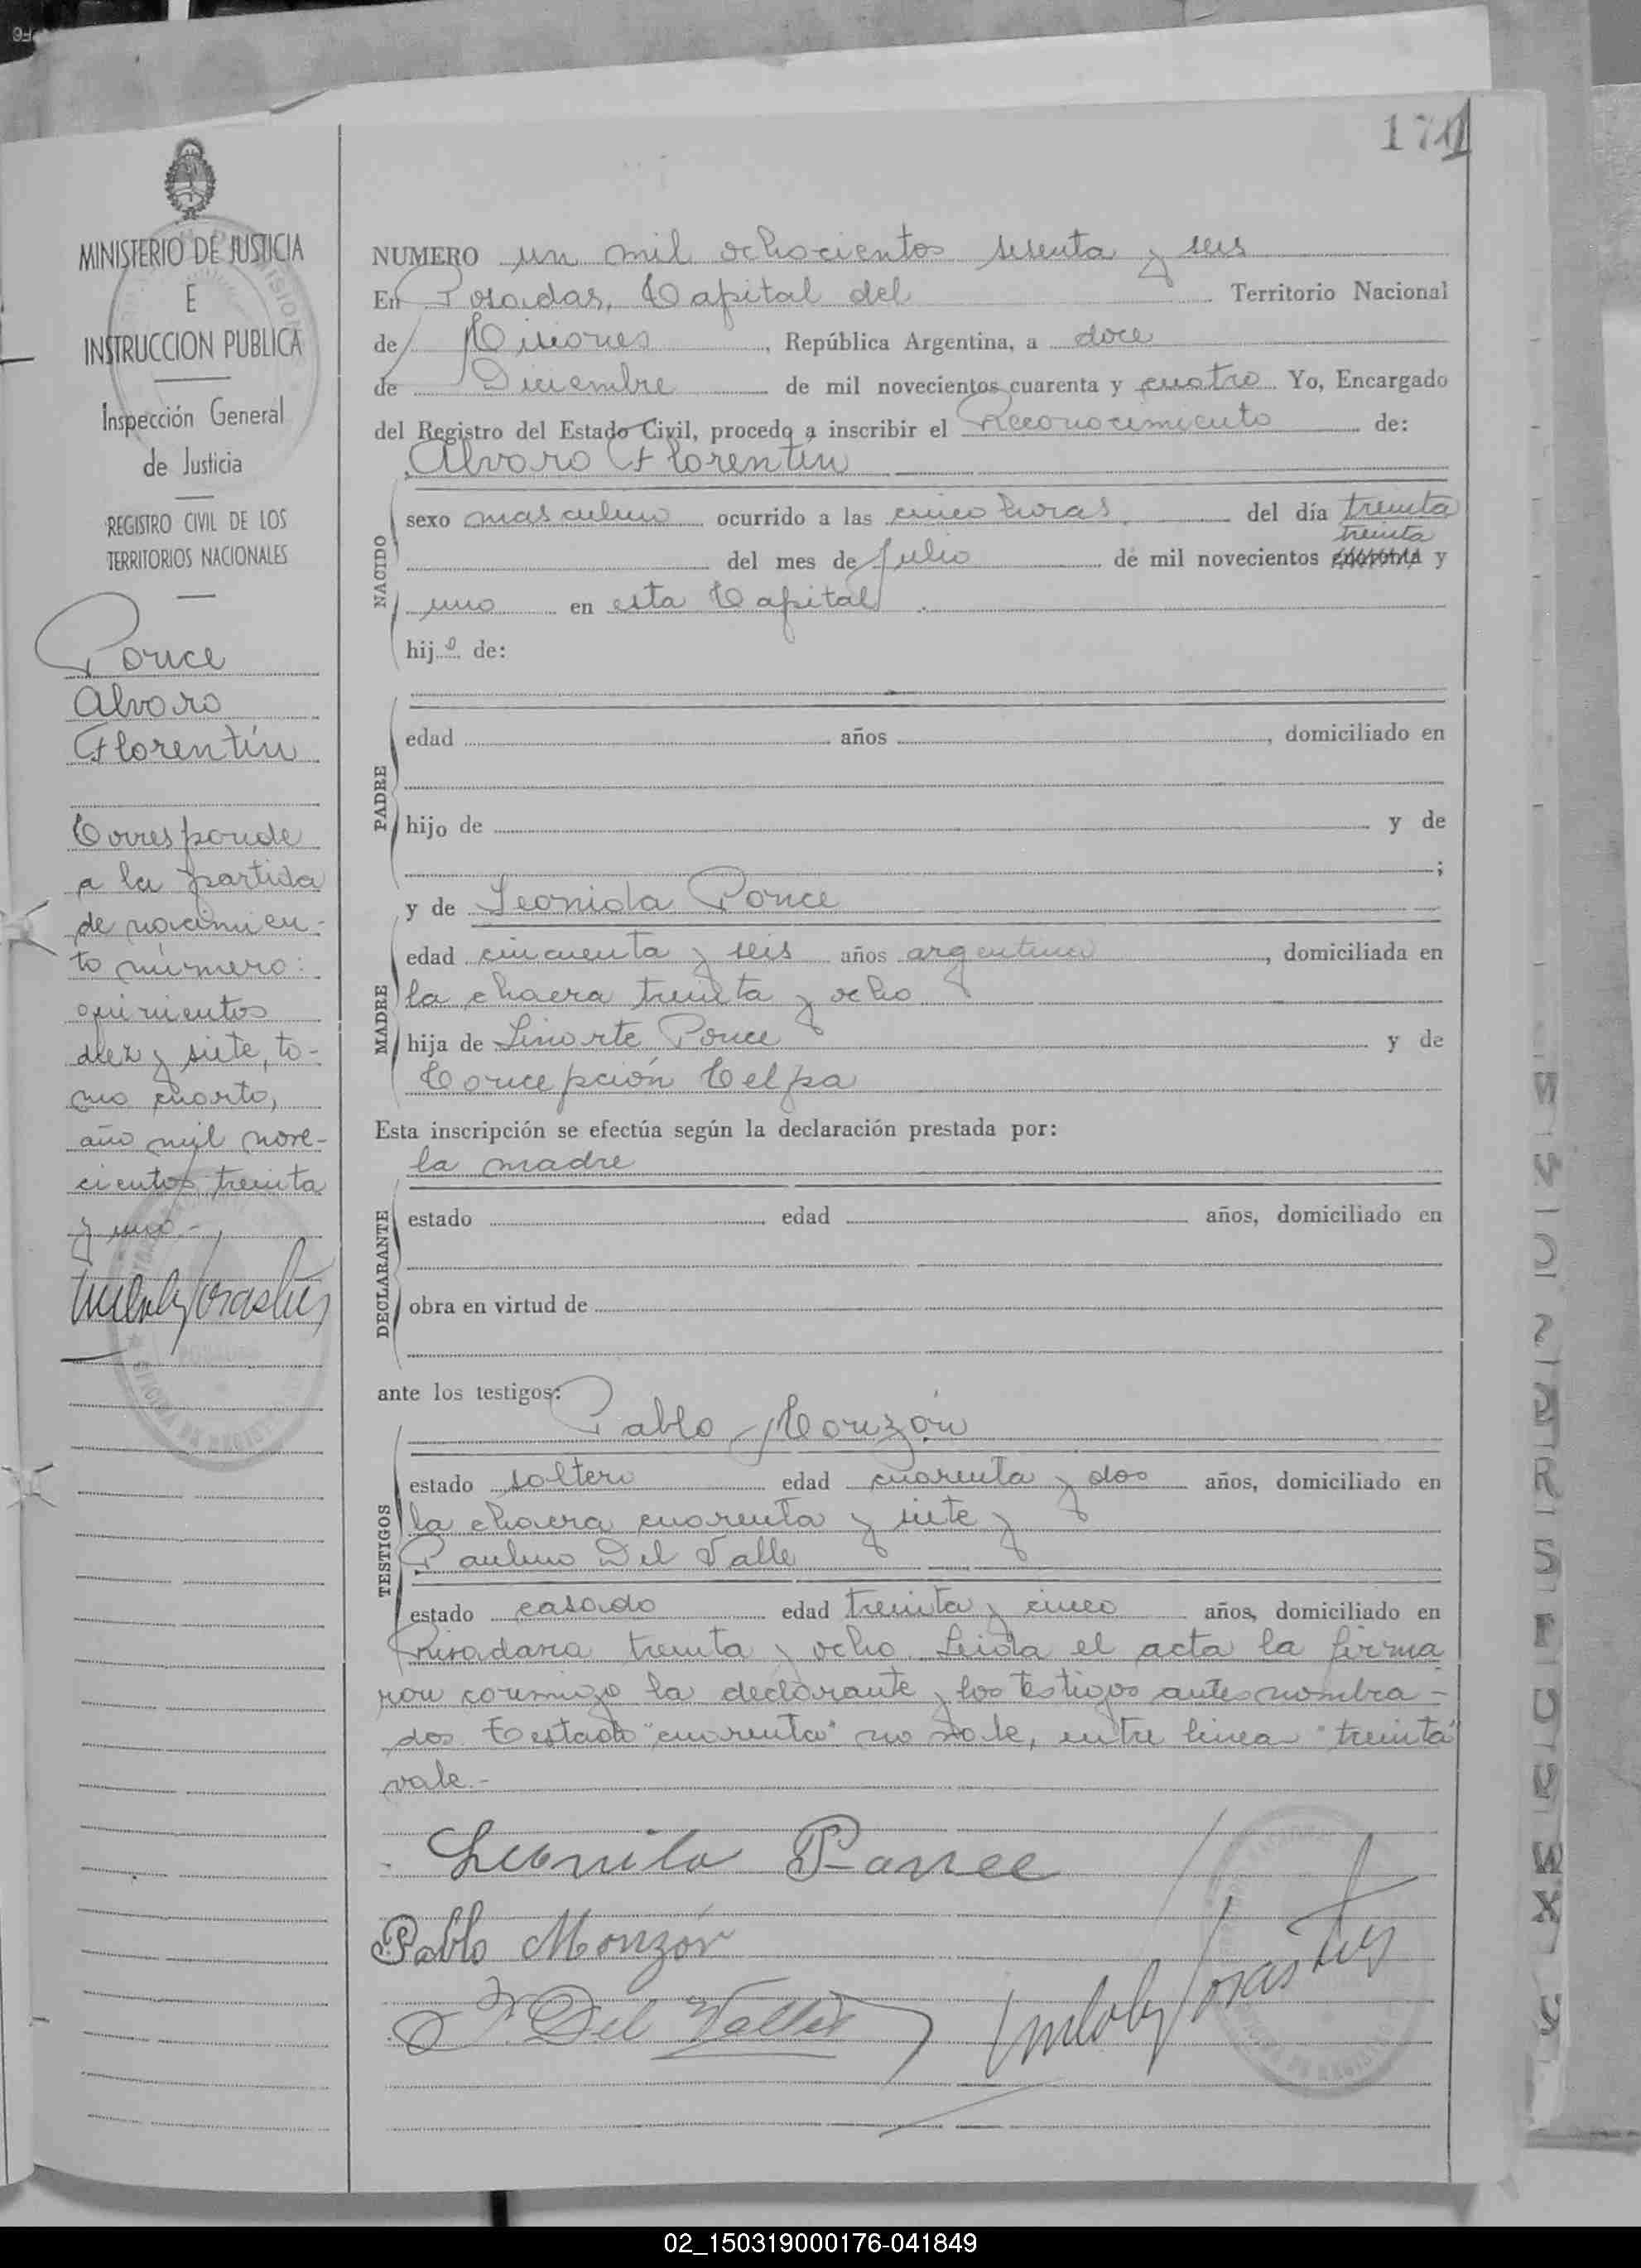 171
MINISTERIO DE JUSTICIA
E
INSTRUCCION PUBLICA
Inspección General
de Justicia
REGISTRO CIVIL DE LOS
TERRITORIOS NACIONALES
Ponce
Alvaro
Florentín
Corresponde
a la partida
de nacimien-
to número:
quinientos
diez y siete, to-
mo cuarto,
año mil nove-
cientos treinta
y uno.-
NUMERO un mil ochocientos sesenta y seis
En Posadas, Capital del Territorio Nacional
de Misiones, República Argentina, a doce
de Diciembre de mil novecientos cuarenta y cuatro Yo, Encargado
del Registro del Estado Civil, procedo a inscribir el Reconocimiento de:
Alvaro Florentín
NACIDO
sexo masculino ocurrido a las cinco horas del día treinta
treinta
del mes de Julio de mil novecientos cuarenta y
uno en esta Capital.
hijo de:
PADRE
edad años , domiciliado en
hijo de y de
;
y de Leonida Ponce
MADRE
edad cincuenta y seis años argentina, domiciliada en
la chacra treinta y ocho
hija de Linarte Ponce y de
Concepción Celpa
Esta inscripción se efectúa según la declaración prestada por:
la madre
DECLARANTE
estado edad años, domiciliado en
obra en virtud de
ante los testigos:
Pablo Monzón
TESTIGOS
estado soltero edad cuarenta y dos años, domiciliado en
la chacra cuarenta y siete y
Paulino Del Valle
estado casado edad treinta y cinco años, domiciliado en
Rivadavia treinta y ocho. Leida el acta la firma
ron conmigo la declarante y los testigos antes nombra-
dos. Testado "cuarenta" no vale, entre linea "treinta"
vale.-
Leonila Ponce
Pablo Monzón
P. Del Valle
02_150319000176-041849